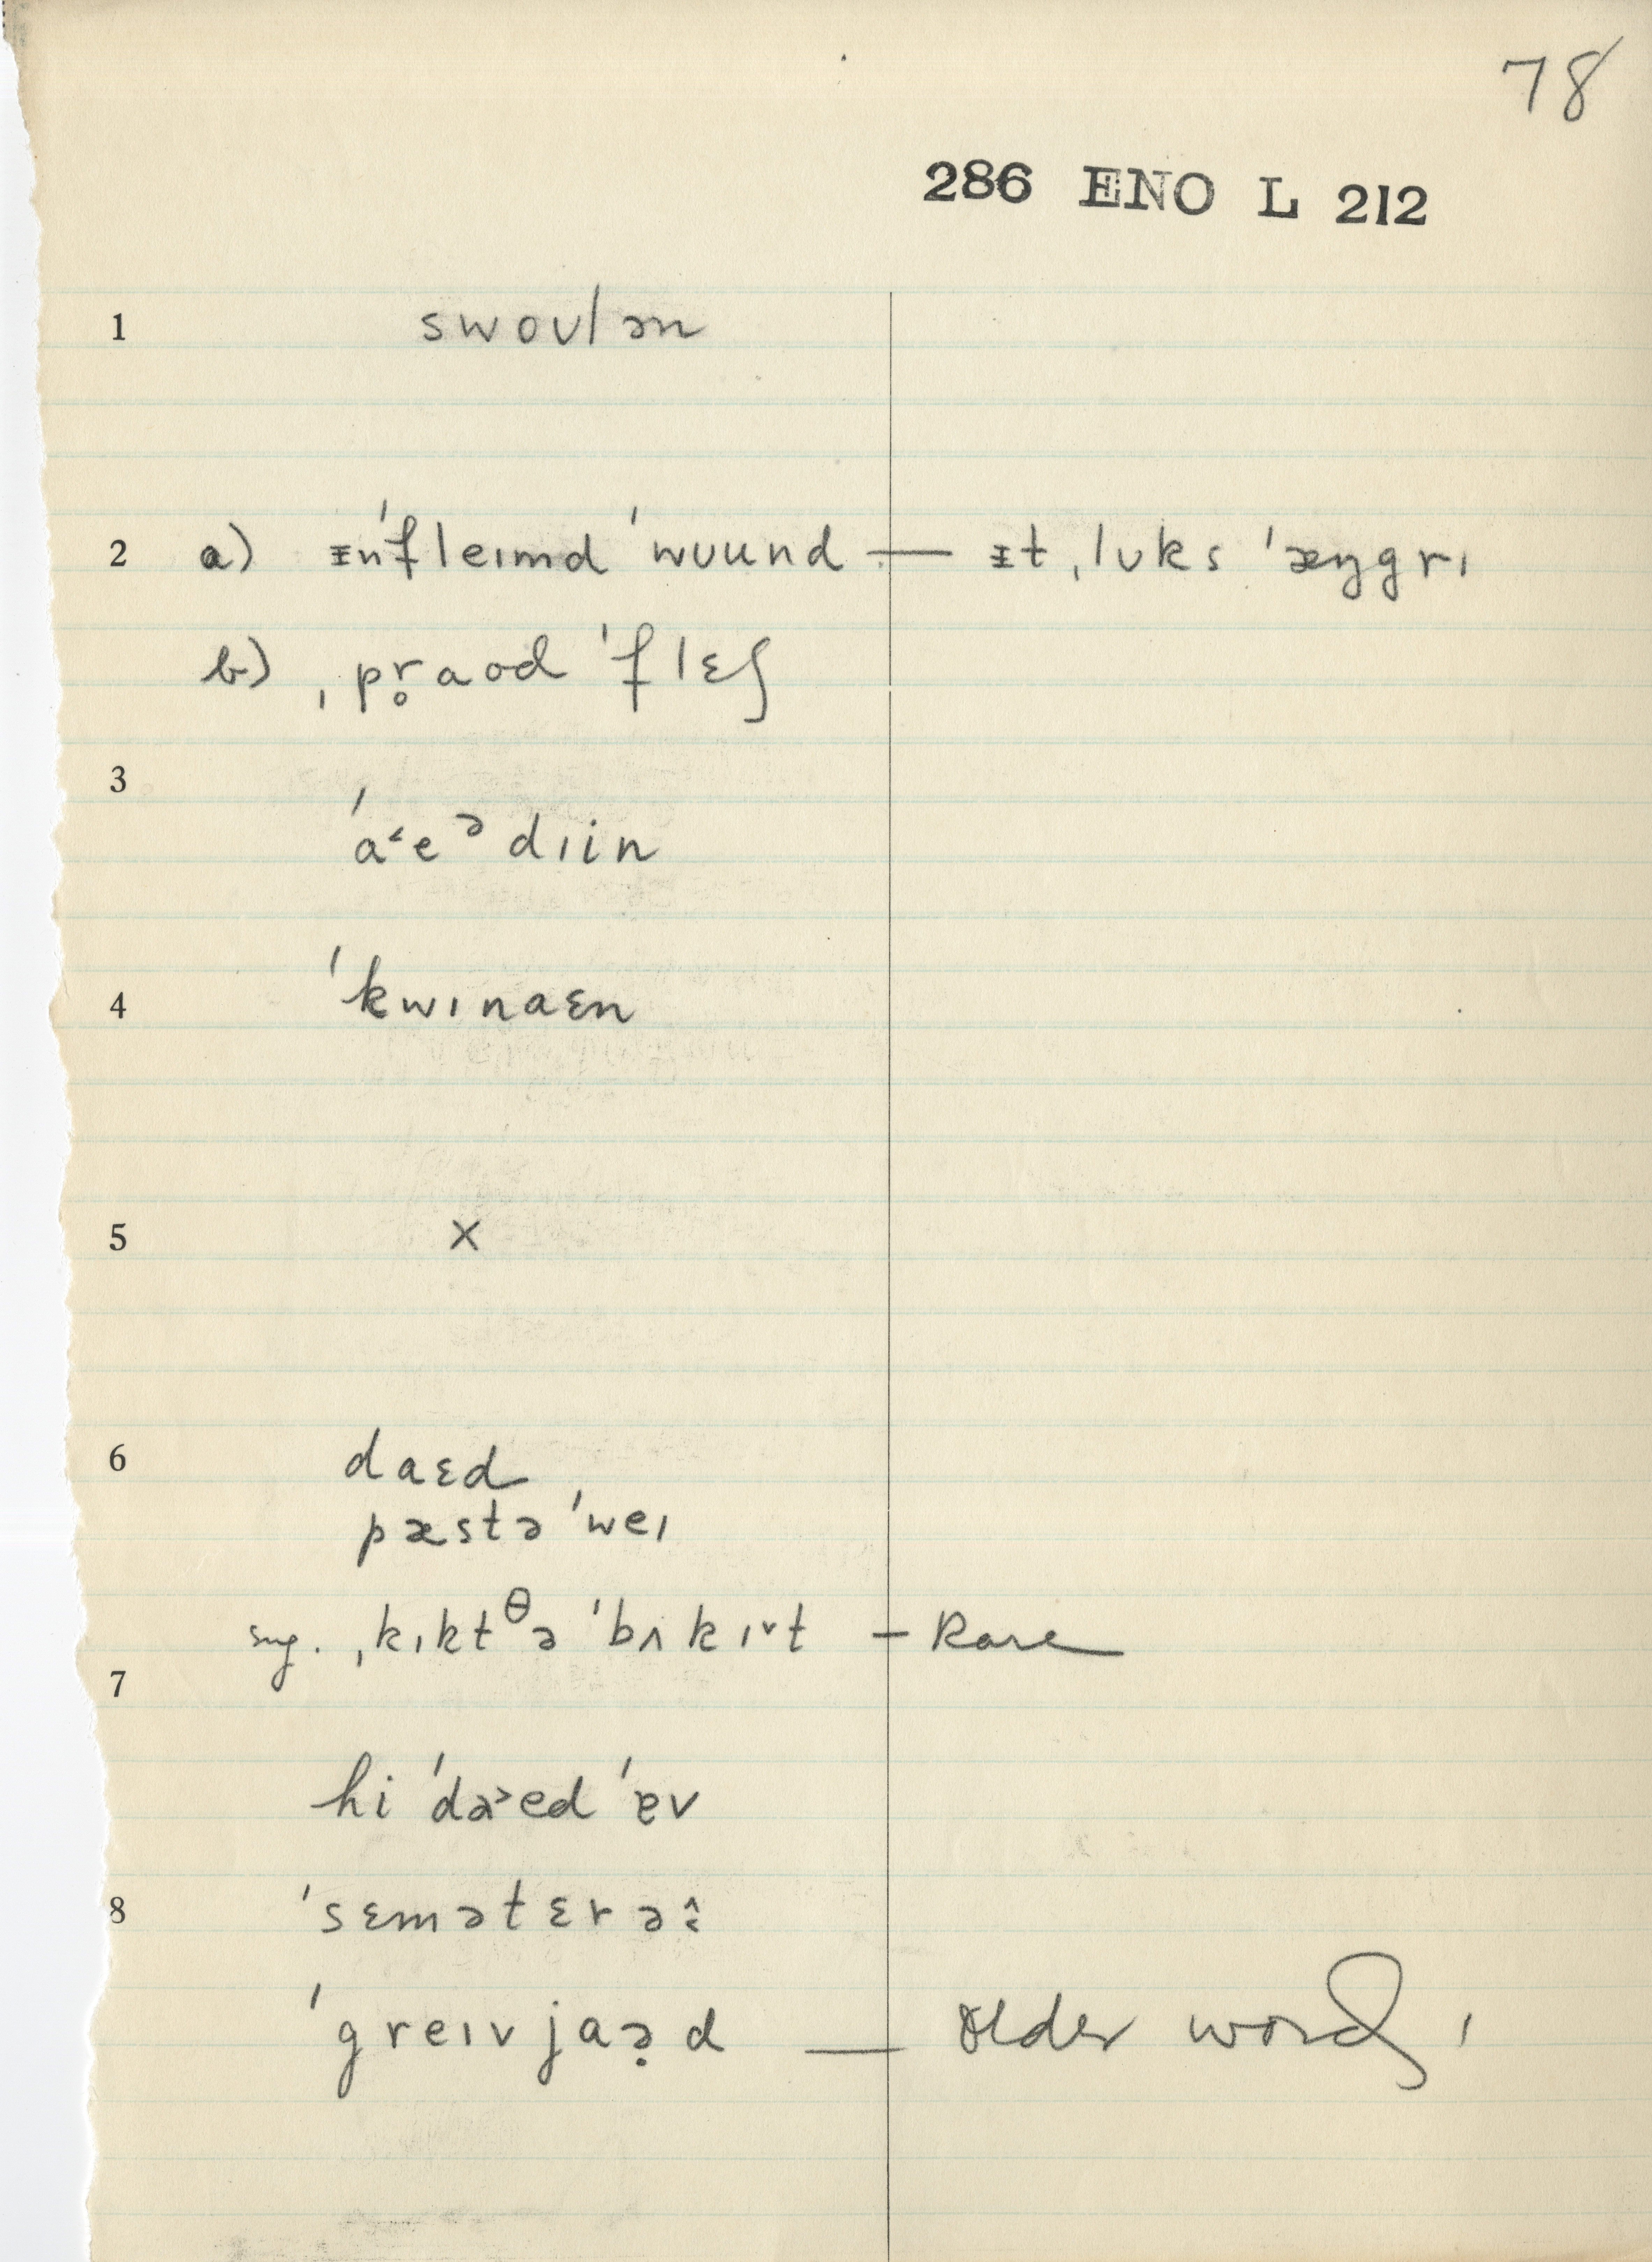 78
286 ENO L 212
1 swoʊlən
2 a) ᵻnˈfleɪmd ˈwuund — ᵻt ˌlʊks ˈæŋgrɪ
b) ˌpr̥aod ˈflɛʃ
3
ˈa˂eᵊdɪin
4 ˈkwɪnaɛn
5 x
6 daɛd
pæstə ˈweɪ
sug. ˌkɪktᶿə ˈbʌkɪ˅t — Rare
7
hi ˈda˃ed ˈɐv
8 ˈsɛmətɛrəi
ˈgreɪvjaə̣d — older word